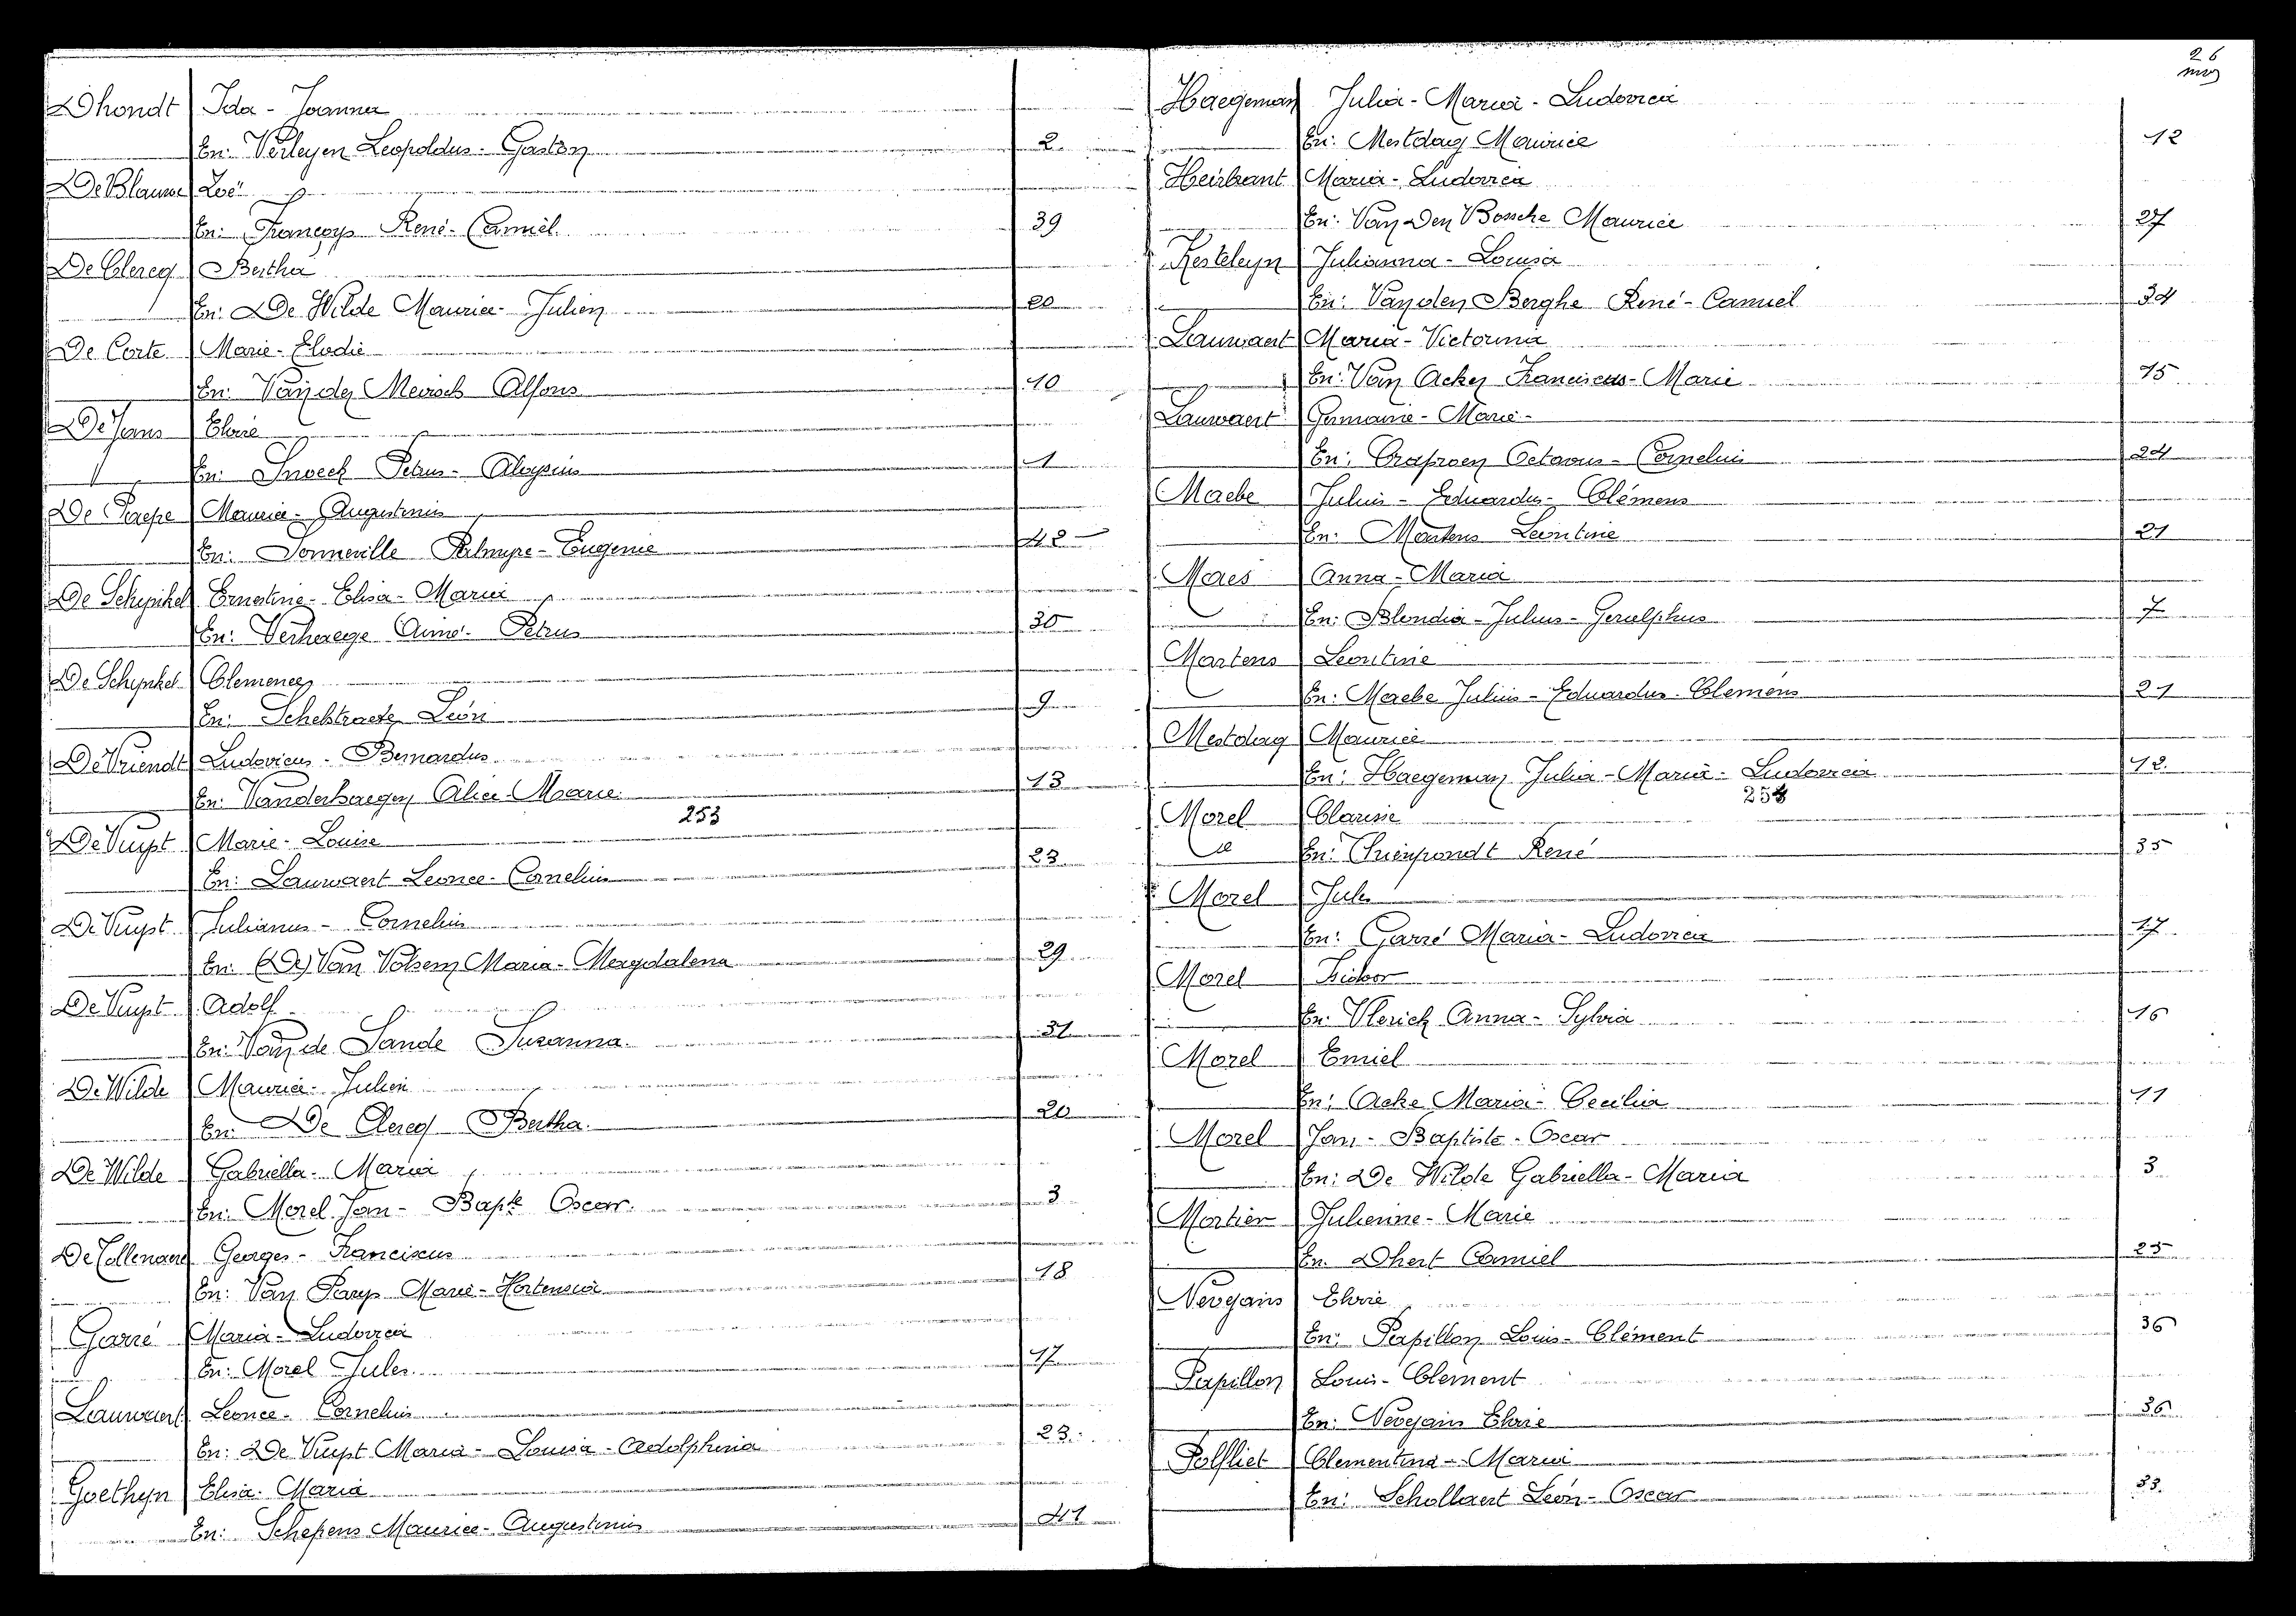 Dhondt Ida - Joanna
En: Verleyen Leopoldus - Gaston 2
De Blauwe Zoë
En: François René - Camiel 39
De Clercq Bertha
En: De Wilde Maurice - Julien 20
De Corte Marie - Elodie
En: Van der Meirsch Alfons 10
De Jans Elvie
En: Snoeck Petrus - Aloysius 1
De Paepe Maurice - Augustinus
En: Donneville Palmyre - Eugenie 42
De Schynkel Ernestine - Elisa - Maria
En: Verhaege Aimé - Petrus 30
De Schynkel Clemence
En: Schelstraete Léon 9
De Vriendt Ludovicus - Bernardus
En: Vanderhaegen Alice Marie 13
253
De Vuyst Marie - Louise
En: Lauwaert Leonce - Cornelius 23
De Vuyst Julianus - Cornelius
En: (De) Van Volsem Maria - Magdalena 29
De Vuyst Adolf
En: Van de Sande Susanna 31
De Wilde Maurice - Julien
En: De Clercq Bertha 20
De Wilde Gabriella - Maria
En: Morel Jan - Bapte Oscar 3
De Collenaere Georges - Franciscus
En: Van Parys Marie - Hortensia 18
Garré Maria - Ludovica
En: Morel Jules 17
Lauwaert Leonce - Cornelius
En: De Vuyst Maria - Louisa - Adolphina 23
Goethyn Elisa - Maria
En: Schepens Maurice - Augustinus 41
26
Haegeman Julia - Maria - Ludovica
En: Mestdag Maurice 12
Heirbrant Maria - Ludovica
En: Van Den Bossche Maurice 27
Kesteleyn Julianna - Louisa
En: Van den Berghe René - Camiel 34
Lauwaert Maria - Victorina
En: Van Acker Franciscus - Marie 15
Lauwaert Germaine - Marie -
En: Octavus - Cornelius 24
Maebe Julius - Eduardus - Clémens
En: Martens Leontine 21
Maes Anna - Maria
En: Blondia - Julius - Gerulphus 7
Martens Leontine
En: Maebe Julius - Eduardus - Clemens 21
Mestdag Maurice
En: Haegeman Julia - Maria - Ludovica 12
Morel Clarisse
En: René 35
Morel Jules
En: Garré Maria - Ludovica 17
Morel Isidoor
En: Vlerick Anna - Sylvia 16
Morel Emiel
En: Acke Maria - Cecilia 11
Morel Jan - Baptiste - Oscar
En: De Wilde Gabriella - Maria 3
Mortier Julienne - Marie
En: Dhert Camiel 25
Nevejans Elvie
En: Papillon Louis - Clément 36
Papillon Louis - Clement
En: Nevejans Elvie 36
Polfliet Clementina - Maria
En: Schollaert Léon - Oscar 33